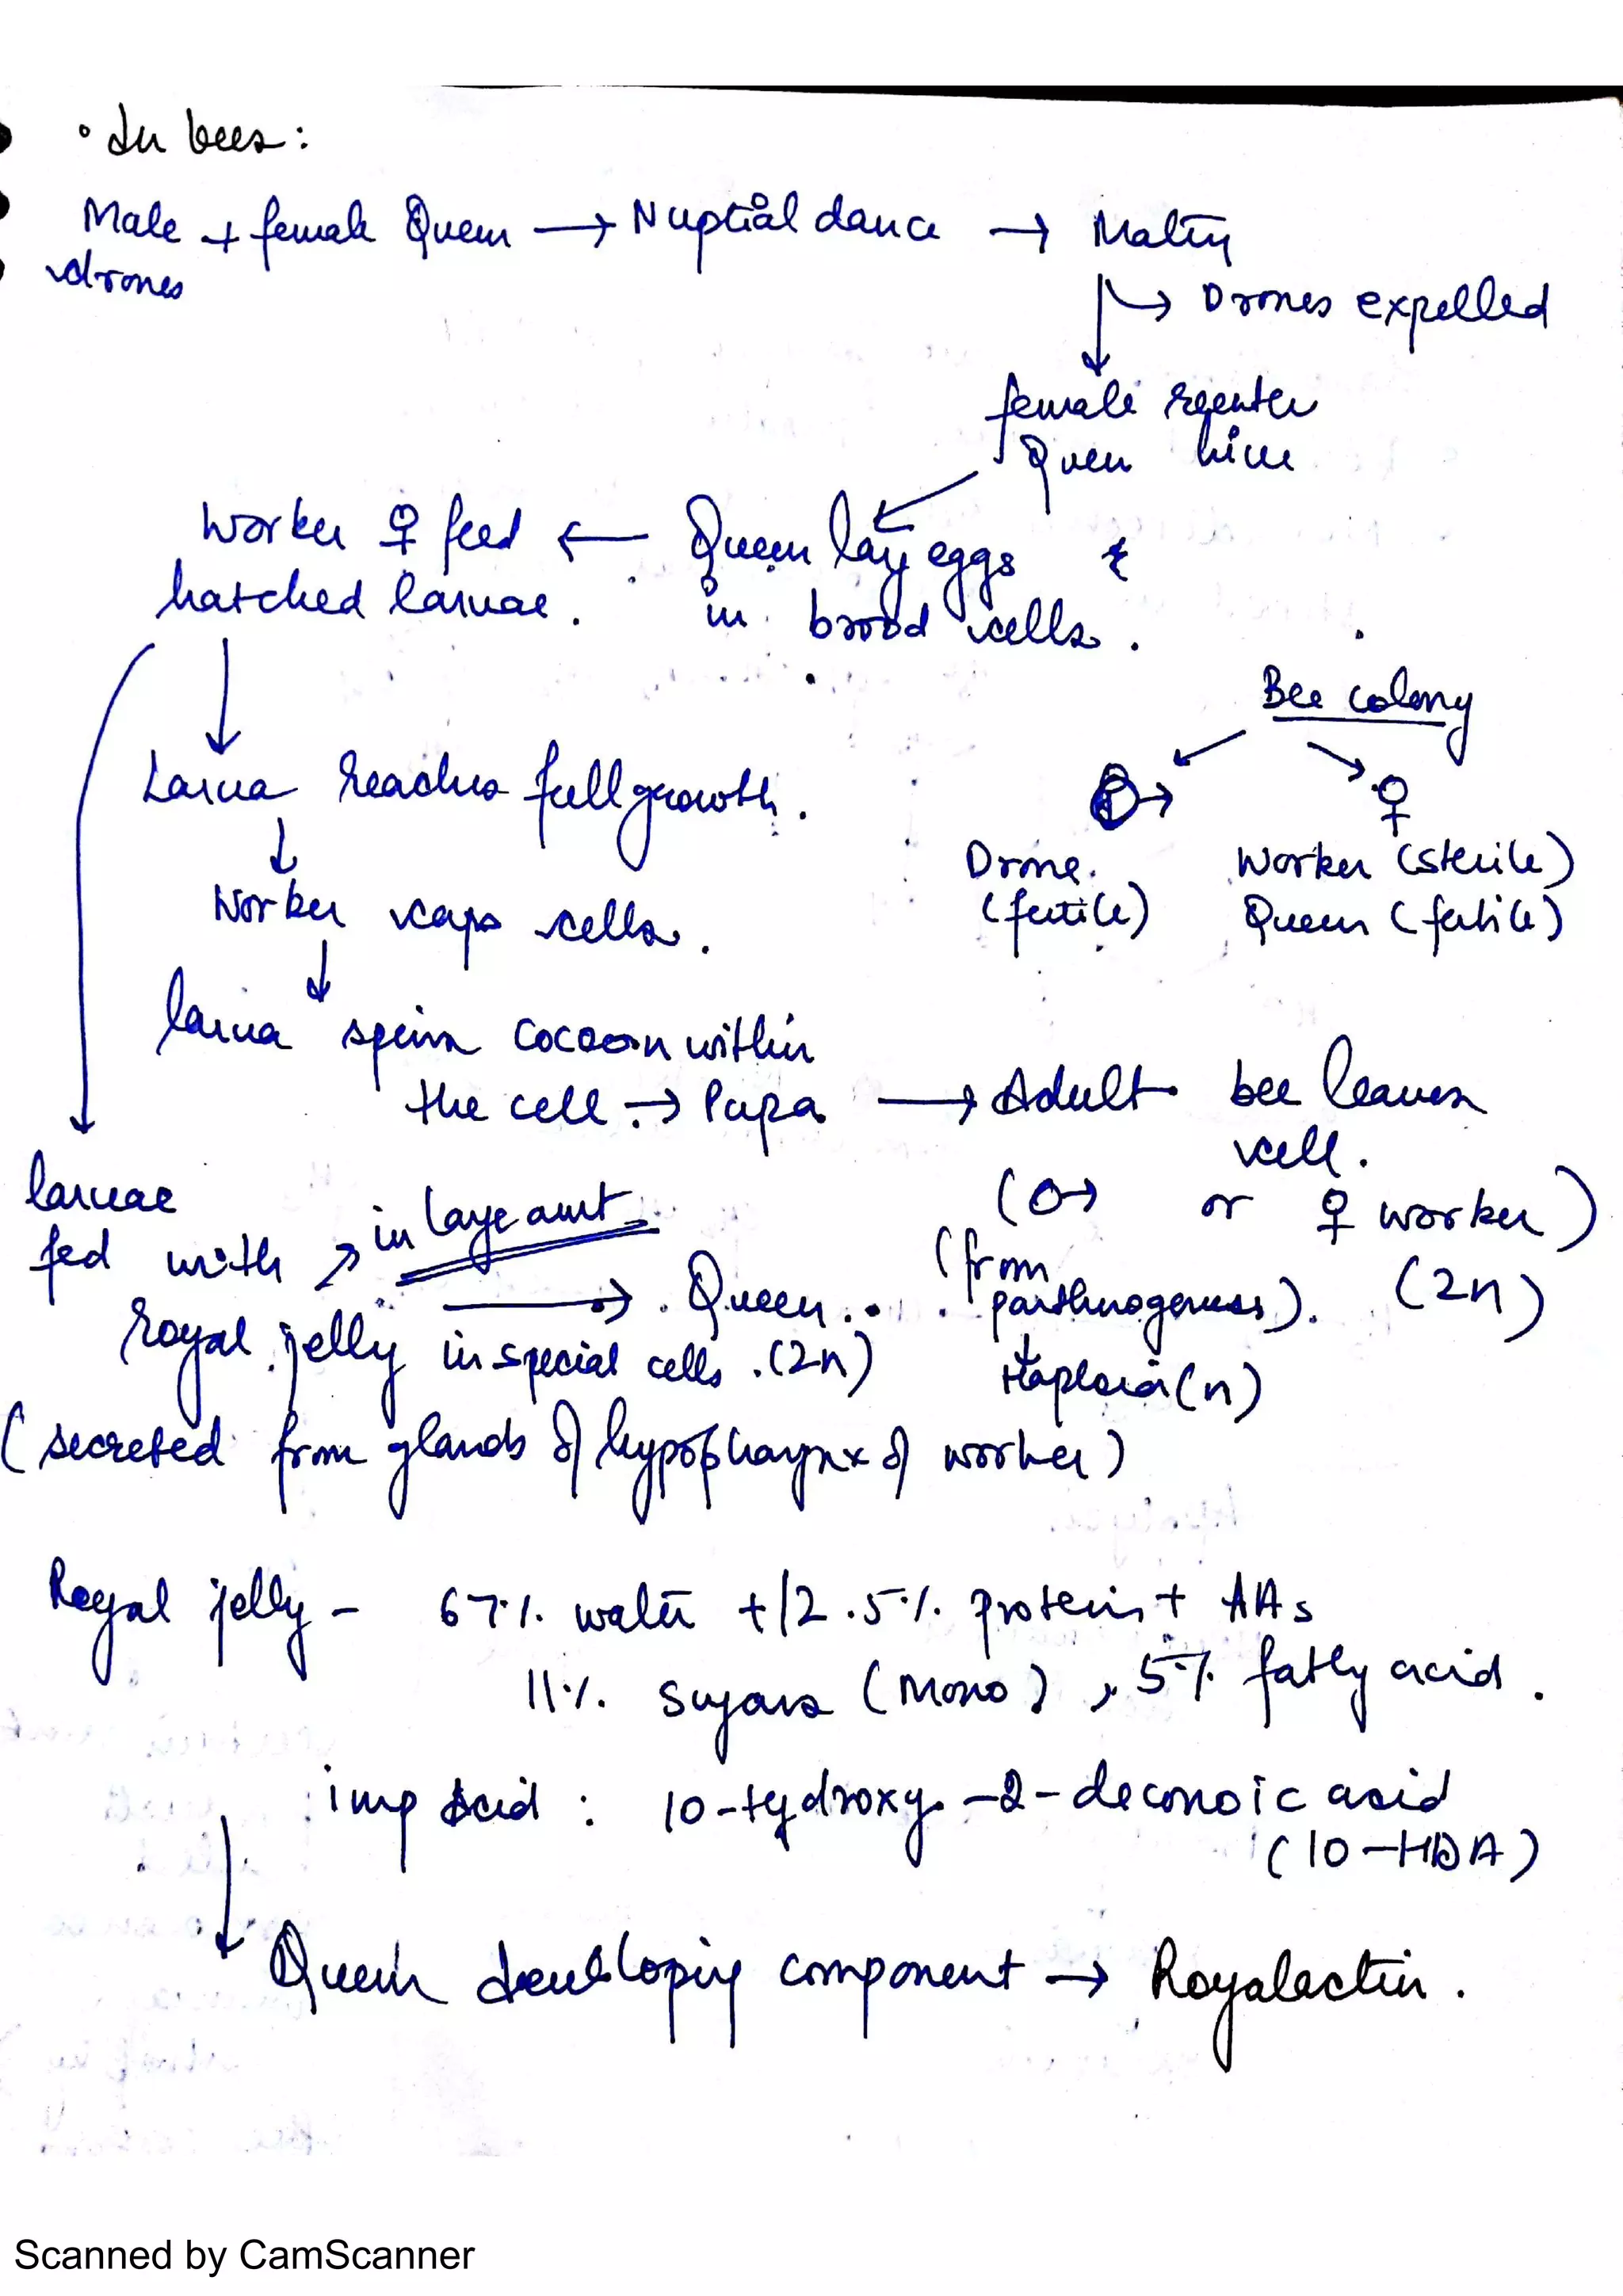 • In bees:
Male + female Queen → Nuptial dance → Mating
drones
→ Drones expelled
female reenter
Queen hive
Worker ♀ feed ← Queen lay eggs &
hatched larvae. in brood cells.
Bee colony
Larva reaches full growth. ♂ ♀
Drone. Worker (sterile)
(fertile) Queen (fertile)
↓
Worker caps cells.
↓
larva spin cocoon within
the cell → Pupa → Adult bee leaves
cell.
(♂ or ♀ worker)
larvae
fed with → in large amt
(from
parthenogenesis). (2n)
↓
Haploid (n)
royal jelly in special cells. → Queen.. (2n)
(secreted from glands of hypopharynx of worker)
Royal jelly - 67% water + 12.5% protein + AAs
11% sugars (Mono), 5% fatly acid.
imp acid : 10-Hydroxy-2-deconoic acid
(10-HDA)
↓
Queen developing component → Royalactin.
Scanned by CamScanner